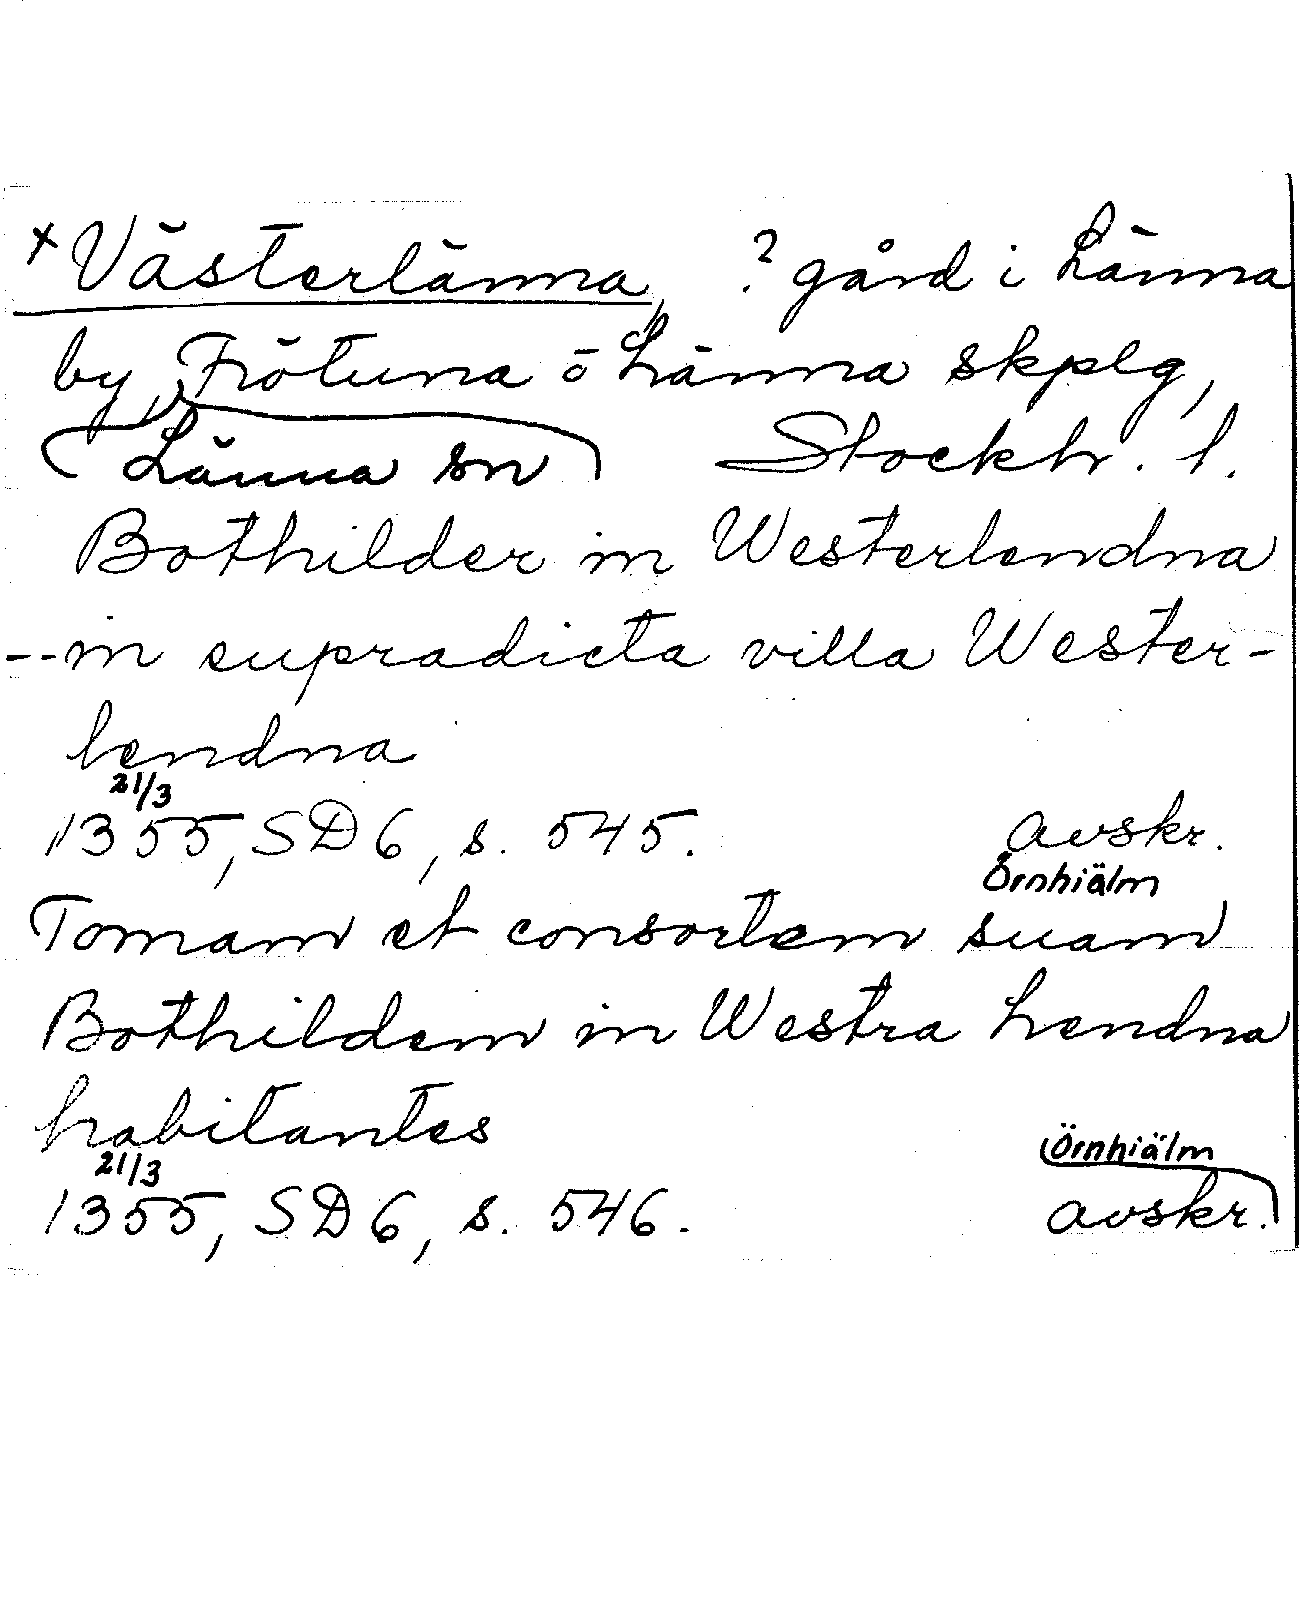 x Västerlänna, ? gård i Länna
by, Frötuna o Länna skplg,
Länna sn Stockh. l.
Bothilder in Westerlendna
-- in supradicta villa Wester-
lendna
21/3
1355, SD 6, s. 545. avskr.
Örnhiälm
Tomam et consortem suam
Bothildem in Westra Lendna
habitantes
21/3 Örnhiälm
1355, SD 6, s. 546. avskr.